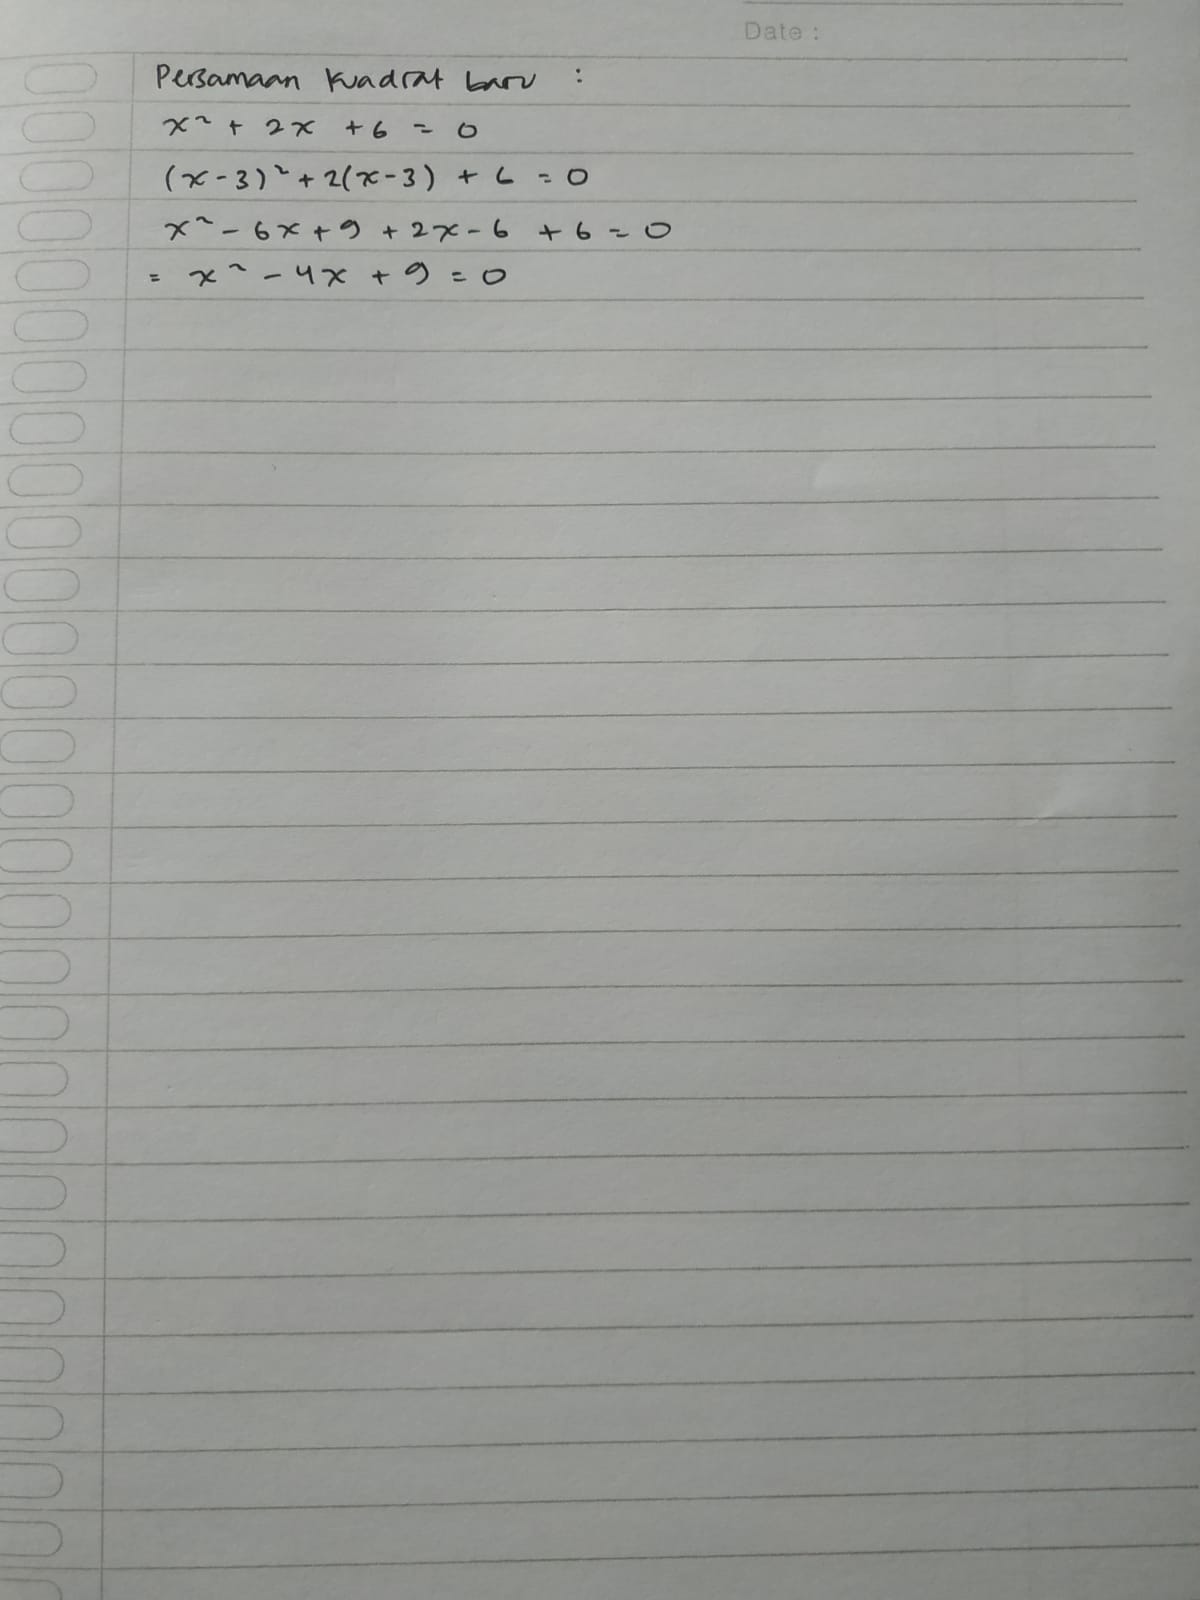 Date :
Persamaan kuadrat baru :
x² + 2x + 6 = 0
(x-3)² + 2(x-3) + 6 = 0
x² - 6x + 9 + 2x - 6 + 6 = 0
= x² - 4x + 9 = 0